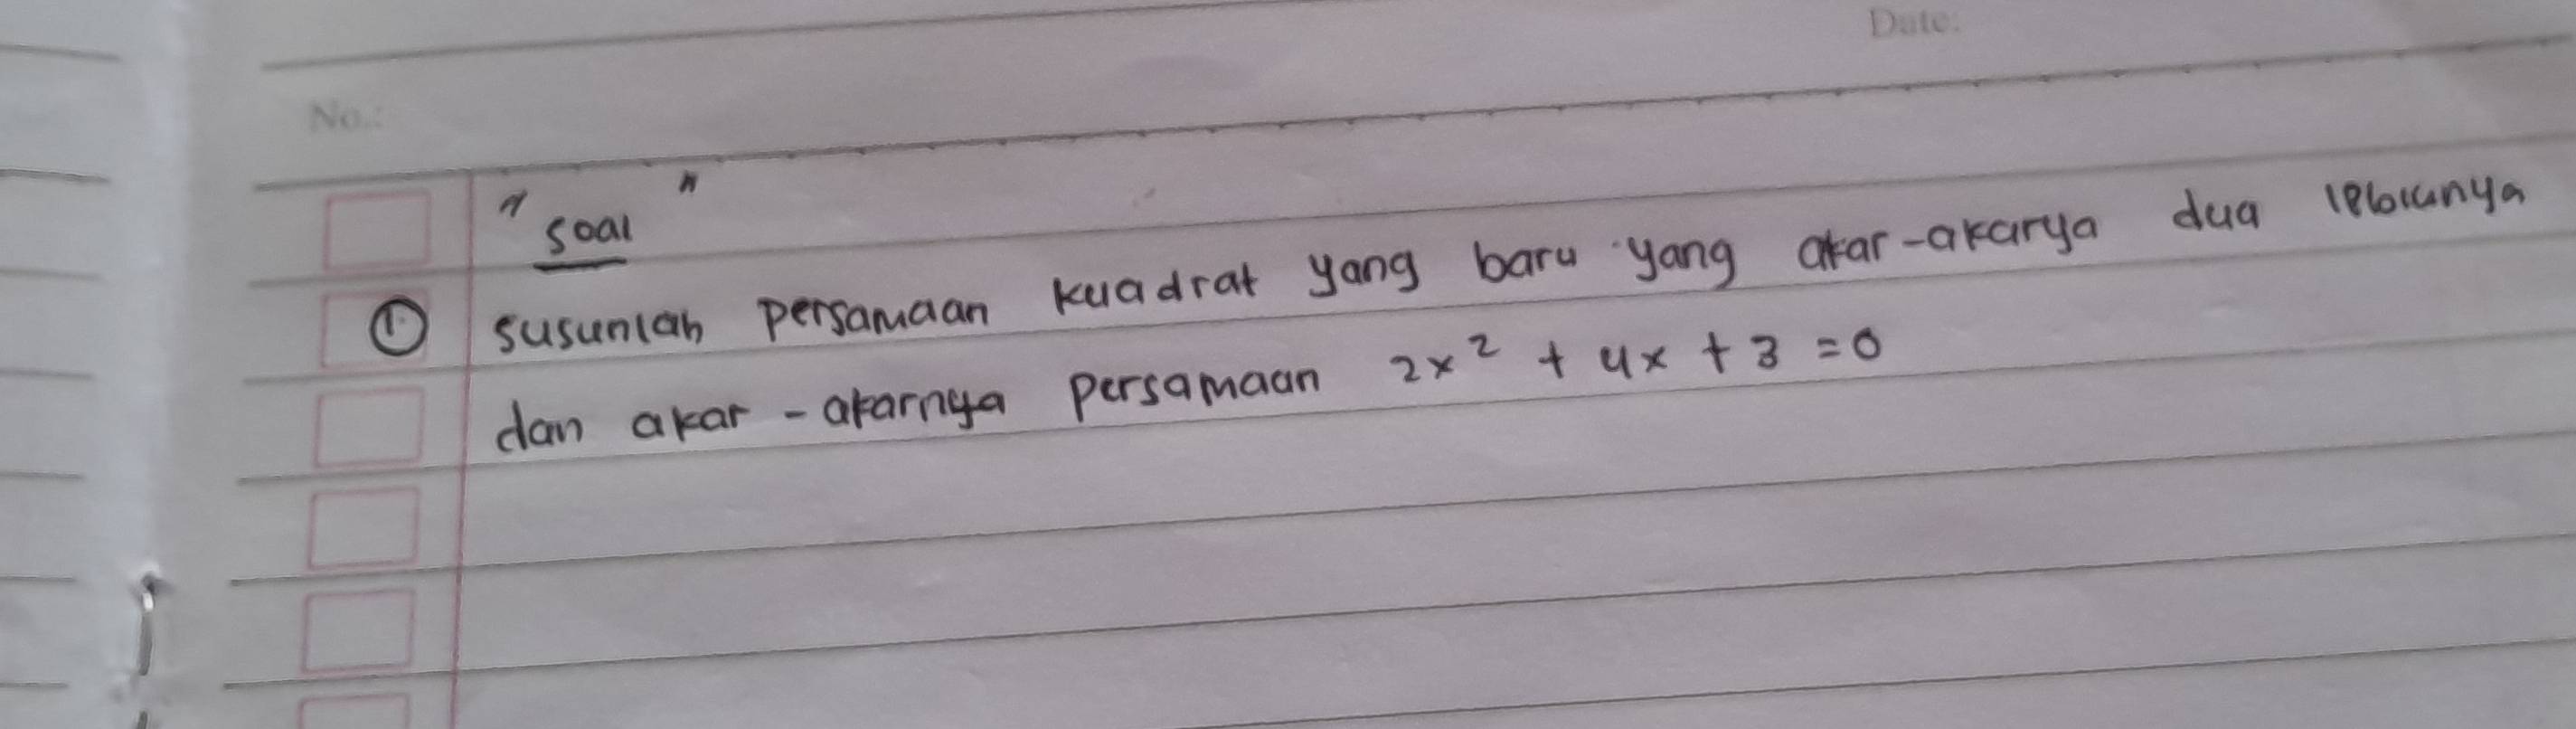 Date:
No.:
" soal "
① susunlah persamaan kuadrat yang baru yang akar-akarya dua lebiunya
dan akar-akarnya persamaan 2x² + 4x + 3 = 0